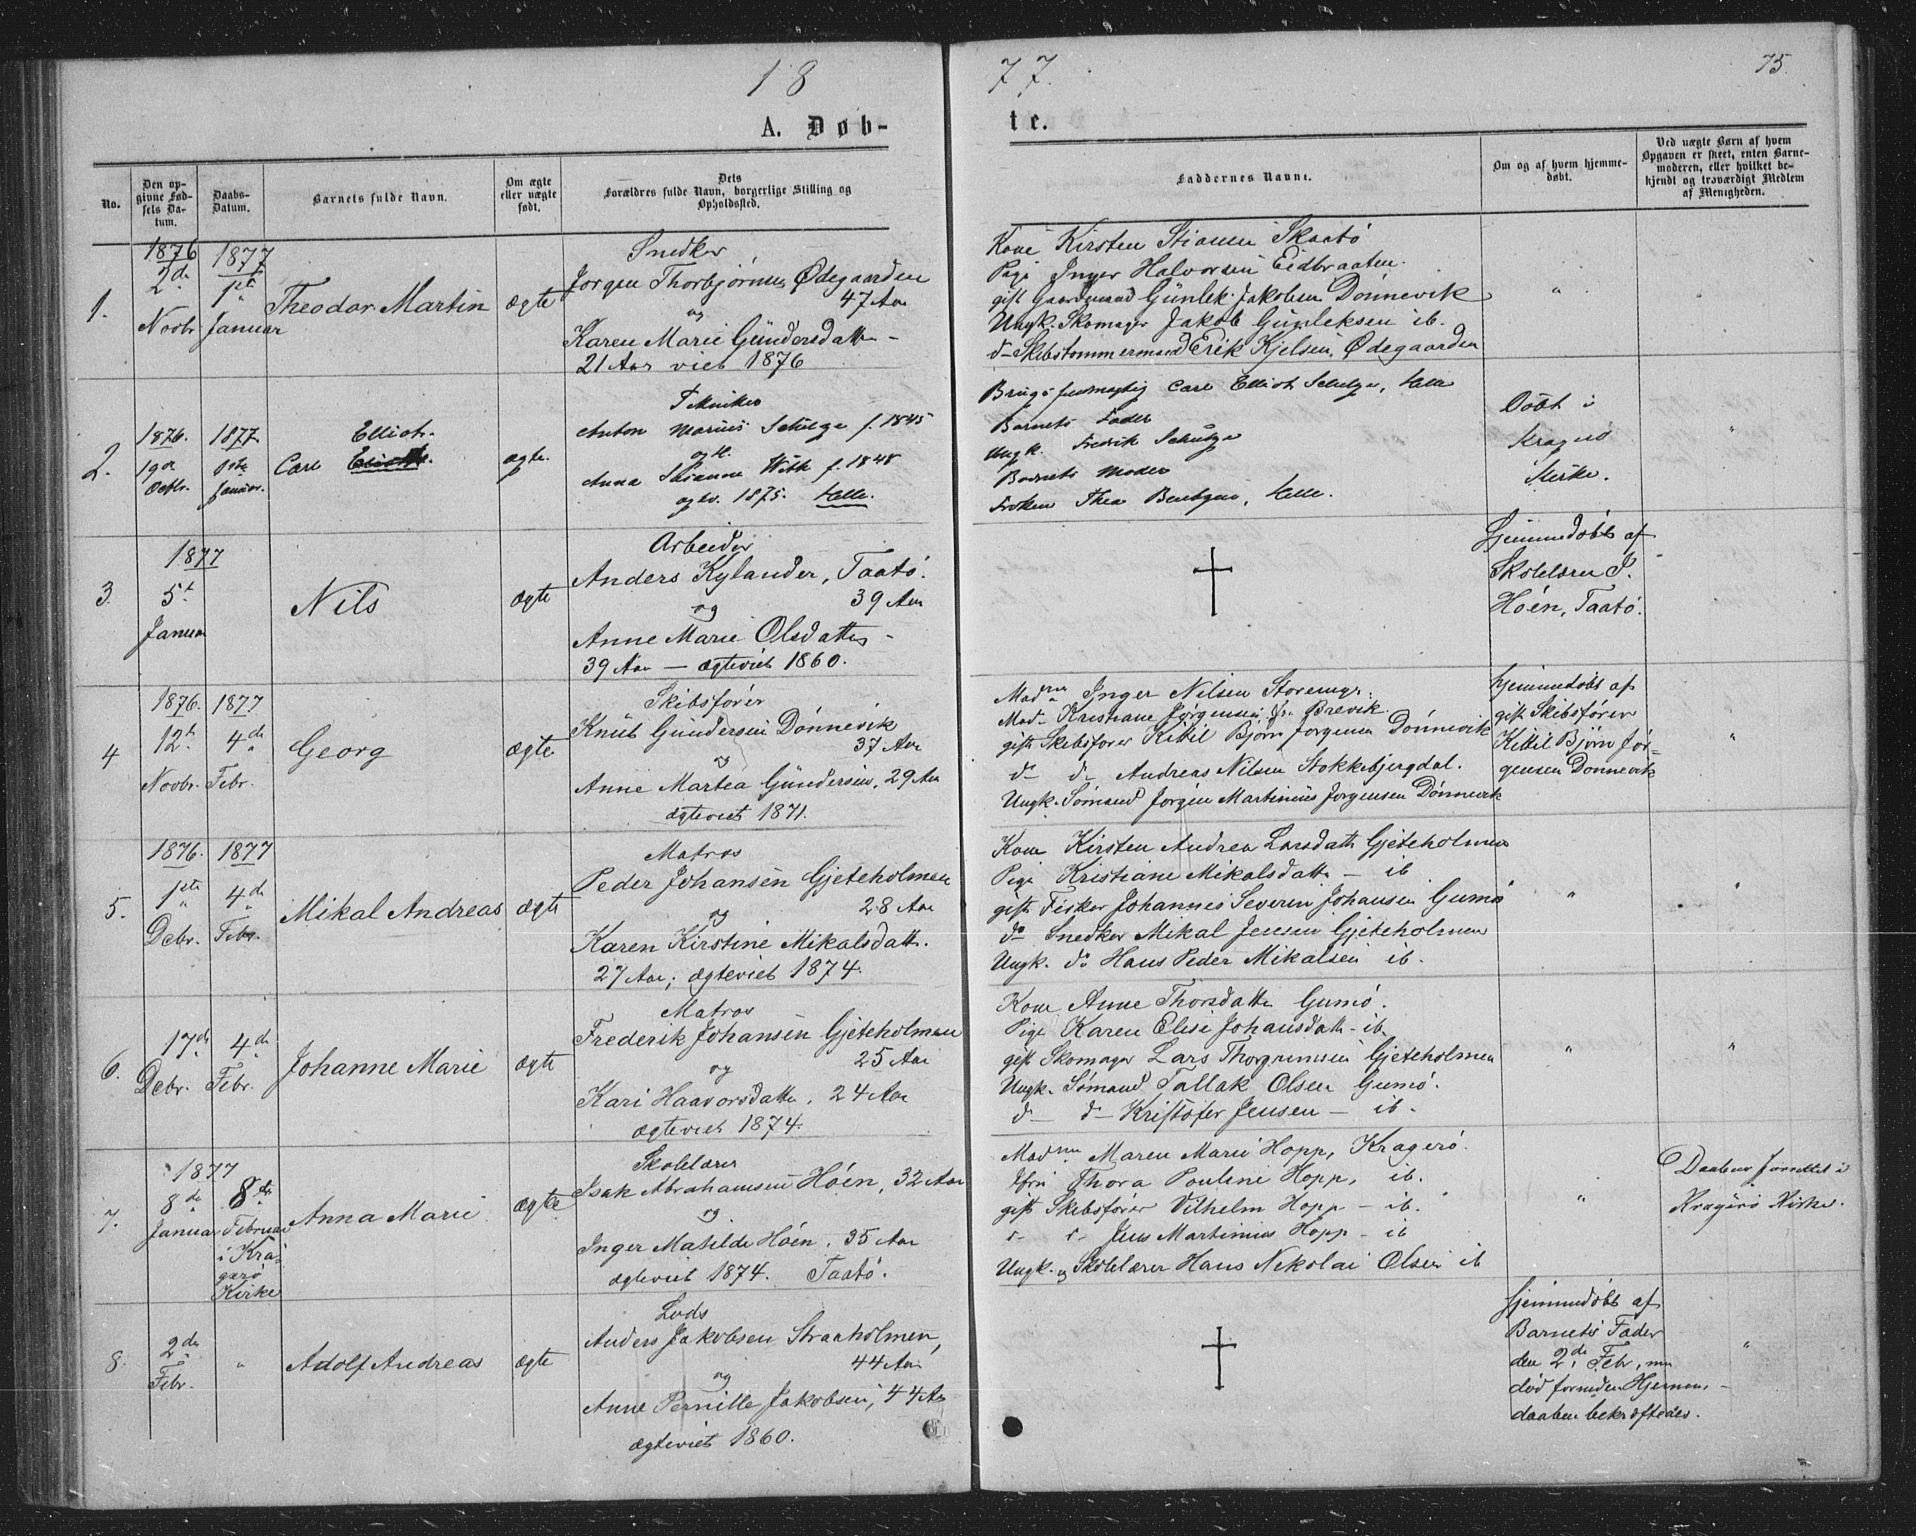 18
77.
75.
A. Døb-
te.
No.
Den op-
givne Fød-
sels Da-
tum.
Daabs-
Datum.
Barnets fulde Navn.
Om ægte
eller uægte
født.
Dets
Forældres fulde Navn, borgerlige Stilling og
Opholdssted.
Faddernes Navne.
Om og af hvem hjemme-
døbt.
Ved uægte Børn af hvem
Opgaven er skeet, enten Barne-
moderen, eller hvilket be-
kjendt og troværdigt Medlem
af Menigheden.
1.
1876
2de
Novbr
1877
1ste
Januar
Theodor Martin
ægte
Snedker
Jørgen Thorbjørnsen Ødegaarden
47 Aar
og
Karen Marie Gündersdatter
21 Aar viet 1876
Kone Kirsten Stiansen Skaatø
Pige Inger Halvorsen Eidbraaten.
gift Gaardmand Günlek Jakobsen Dønnevik
Ungk. Skomager Jakob Günleksen ib.
d- Skibstømmermand Erik Kjelsen, Ødegaarden
"
2.
1876.
19de
Octbr.
1877
1ste
Januar.
Elliot.
Carl
ægte.
Tekniker
Anton Marius Schulze f. 1845
og H.
Anna Susanne With f. 1848
ægtv. 1875. Helle.
Brugsfuldmægtig Carl Elliot Schulze, Helle
Barnets Fader
Ungk. Fredrik Schulze
Barnets Moder
Frøken Thea Bentzen, Helle.
Døbt i
Kragerø
Kirke.
"
3.
1877
5te
Januar
Nils
ægte
Arbeider
Anders Kylander, Taatø.
39 Aar
og
Anne Marie Olsdatter
39 Aar — ægteviet 1860.
Hjemmedøbt af
Skolelærer I.
Hoén, Taatø.
4
1876. 1877
12te
Novbr.
4de
Febr.
Georg
ægte
Skibsfører
Knüt Gündersen Dønnevik
37 Aar
og
Anne Martea Gündersen, 29 Aar
ægteviet 1871.
Madme Inger Nilsen Storemyr.
Mad- Kristiane Jørgensen fr. Brevik.
gift Skibsfører Kittil Bjørn Jørgensen Dønnevik
d- d- Andreas Nilsen Stokkebjergdal.
Ungk. Sømand Jørgen Martinius Jørgensen Dønnevik
hjemmedøbt af
gift Skibsfører
Kittil Bjørn Jør-
gensen Dønnevik
"
5.
1876. 1877
1ste
Debr.
4de
Febr.
Mikal Andreas
ægte
Matros
Peder Johansen Gjeteholmen
28 Aar
og
Karen Kirstine Mikalsdatt.
27 Aar; ægteviet 1874.
Kone Kirsten Andrea Larsdatt Gjeteholmen
Pige Kristiane Mikalsdatt — ib
gift Fisker Johannes Severin Johansen Gumø
do Snedker Mikal Jensen Gjeteholmen
Ungk. do Hans Peder Mikalsen ib.
"
"
6.
17de
Debr.
4de
Febr.
Johanne Marie
ægte
Matros
Frederik Johansen Gjeteholmen
25 Aar
og
Kari Haavorsdatter. 24 Aar
ægteviet 1874.
Kone Anne Thorsdatter Gumø.
Pige Karen Elise Johansdatt - ib
gift Skomager Lars Thorgrimsen Gjeteholmen
Ungk. Sømand Tallak Olsen Gumø.
d- d- Kristofer Jensen — ib.
"
"
7.
1877
8de
Januar
8de
Februar
i Kra-
gerø
Kirke
Anna Marie
ægte
Skolelærer
Isak Abrahamsen Hoén, 32 Aar
og
Inger Matilde Hoén. 35 Aar
ægteviet 1874. Taatø.
Madme Maren Marie Hopp, Kragerø.
Jfr. Thora Pouline Hopp, ib.
gift Skibsfører Vilhelm Hopp — ib.
Jens Martinius Hopp — ib
Ungk. og Skolelærer Hans Nikolai Olsen ib
"
Daaben forrettet i
Kragerø Kirke.
8.
2de
Febr.
"
Adolf Andreas
ægte
Lods
Anders Jakobsen Straaholmen,
44 Aar
og
Anne Pernille Jakobsen, 44 Aar
ægteviet 1860.
Hjemmedøbt af
Barnets Fader
den 2de Febr, men
død forinden Hjemme-
daaben bekræftedes.
"